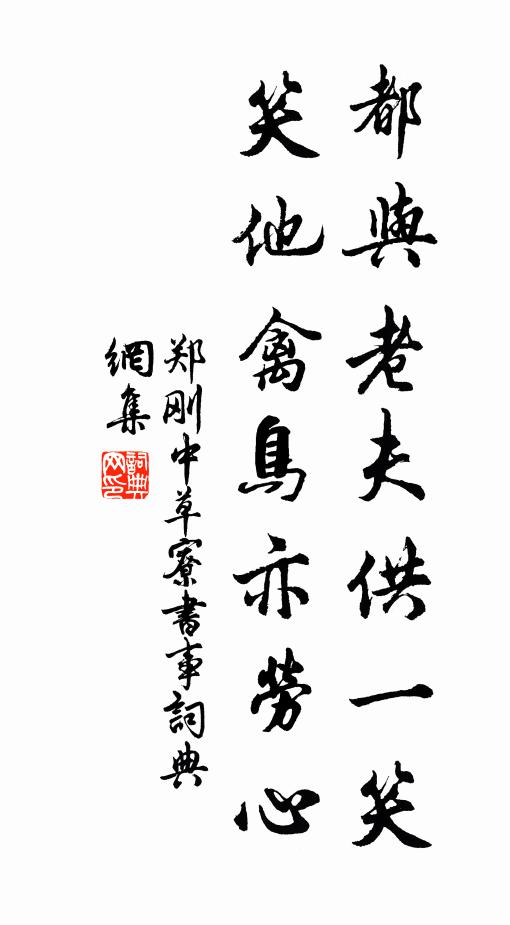 都與老夫供一笑
笑他禽鳥亦勞心
郑刚中草寮書事詞典
網集
詞典
网印